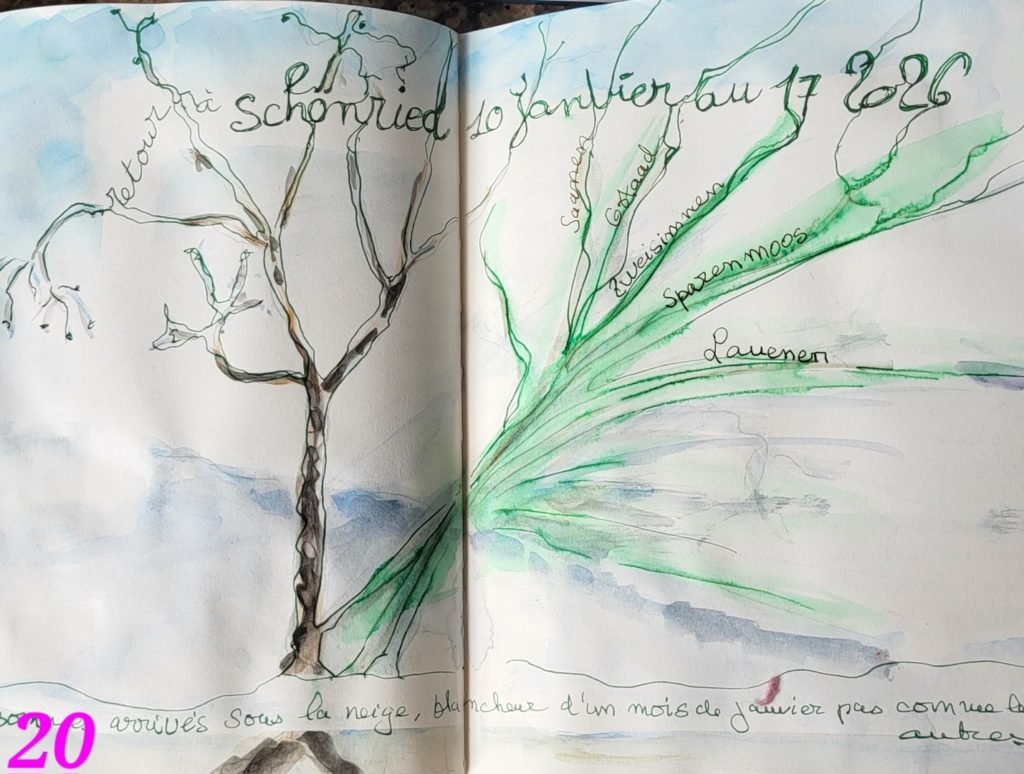 Retour à Schönried 10 Janvier au 17 2026
Saanen
Gstaad
Zweisimmen
Sparenmoos
Lauenen
sommes arrivés sous la neige, blancheur d'un mois de janvier pas comme les
autres
20